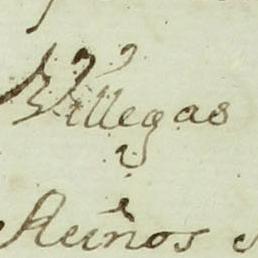 Villegas
Reinos